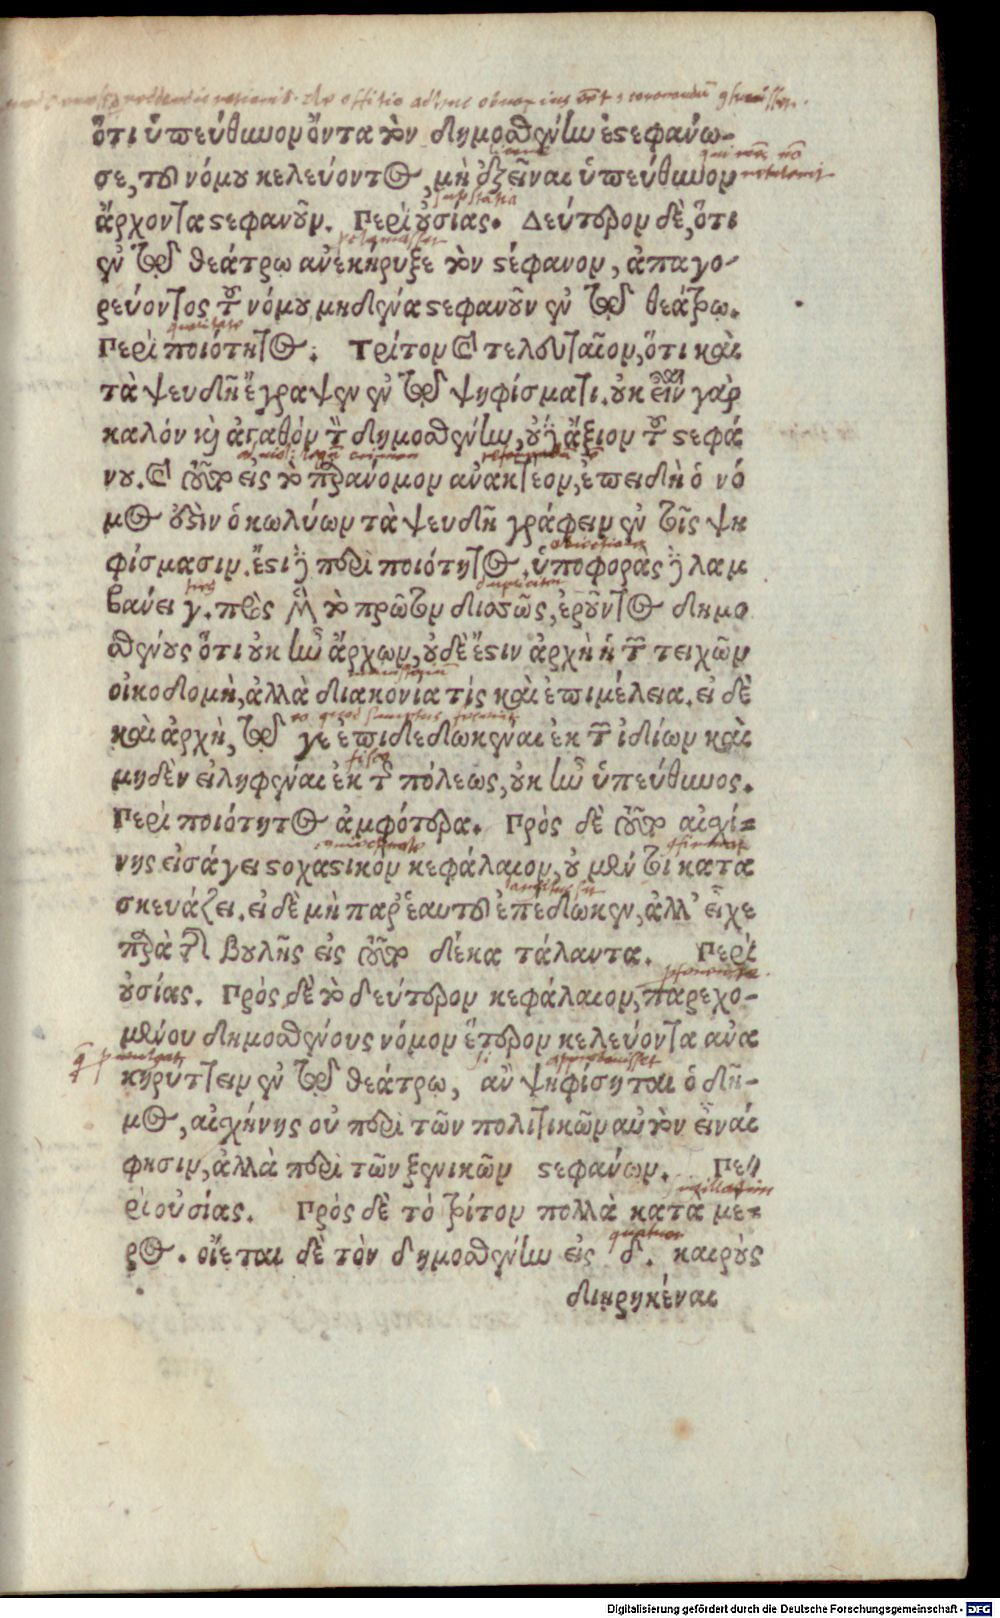 ὅτι ὑπεύθυνον ὄντα τὸν δημοσθένην ἐστεφάνω-
σε, τοῦ νόμου κελεύοντος, μὴ ἐξεῖναι ὑπεύθυνον
ἄρχοντα στεφανοῦν. Περὶ οὐσίας. Δεύτερον δὲ, ὅτι
ἐν τῷ θεάτρῳ ἀνεκήρυξε τὸν στέφανον, ἀπαγο-
ρεύοντος τοῦ νόμου μηδένα στεφανοῦν ἐν τῷ θεάτρῳ.
Περὶ ποιότητος. Τρίτον καὶ τελευταῖον, ὅτι καὶ
τὰ ψευδῆ ἔγραψεν ἐν τῷ ψηφίσματι. οὐκ εἶναι γὰρ
καλόν καὶ ἀγαθὸν τὸν δημοσθένην, οὐδὲ ἄξιον τοῦ στεφά
νου. καὶ τοῦτο εἰς τὸ παράνομον ἀνακτέον, ἐπειδὴ ὁ νό
μος οὗτός ἐστιν ὁ κωλύων τὰ ψευδῆ γράφειν ἐν τοῖς ψη
φίσμασιν. ἔστι δὲ περὶ ποιότητος. ὑποφορὰς δὲ λαμ
βάνει γ. πρὸς μὲν τὸ πρῶτον διττῶς, ἐροῦντος δημο
σθένους ὅτι οὐκ ἦν ἄρχων, οὐδὲ ἔστιν ἀρχὴ ἡ τῶν τειχῶν
οἰκοδομὴ, ἀλλὰ διακονία τίς καὶ ἐπιμέλεια. εἰ δὲ
καὶ ἀρχὴ, τῷ γε ἐπιδεδωκέναι ἐκ τῶν ἰδίων καὶ
μηδὲν εἰληφέναι ἐκ τῆς πόλεως, οὐκ ἦν ὑπεύθυνος.
Περὶ ποιότητος ἀμφότερα. Πρὸς δὲ τοῦτο αἰσχί-
νης εἰσάγει στοχαστικὸν κεφάλαιον, ὃ μέν τοι κατα
σκευάζει. εἰ δὲ μὴ παρ' ἑαυτοῦ ἐπέδωκεν, ἀλλ' εἶχε
παρὰ τῆς βουλῆς εἰς τοῦτο δέκα τάλαντα. Περὶ
οὐσίας. Πρὸς δὲ τὸ δεύτερον κεφάλαιον, παρεχο-
μένου δημοσθένους νόμον ἕτερον κελεύοντα ἀνα
κηρύττειν ἐν τῷ θεάτρῳ, ἂν ψηφίσηται ὁ δῆ-
μος, αἰσχήνης οὐ περὶ τῶν πολιτικῶν αὐτὸν εἶναί
φησιν, ἀλλὰ περὶ τῶν ξενικῶν στεφάνων. Πε-
ρὶ οὐσίας. Πρὸς δὲ τὸ τρίτον πολλὰ κατὰ μέ-
ρος. οἴεται δὲ τὸν δημοσθένην εἰς δ. καιροὺς
διῃρηκέναι
Digitalisierung gefördert durch die Deutsche Forschungsgemeinschaft - DFG